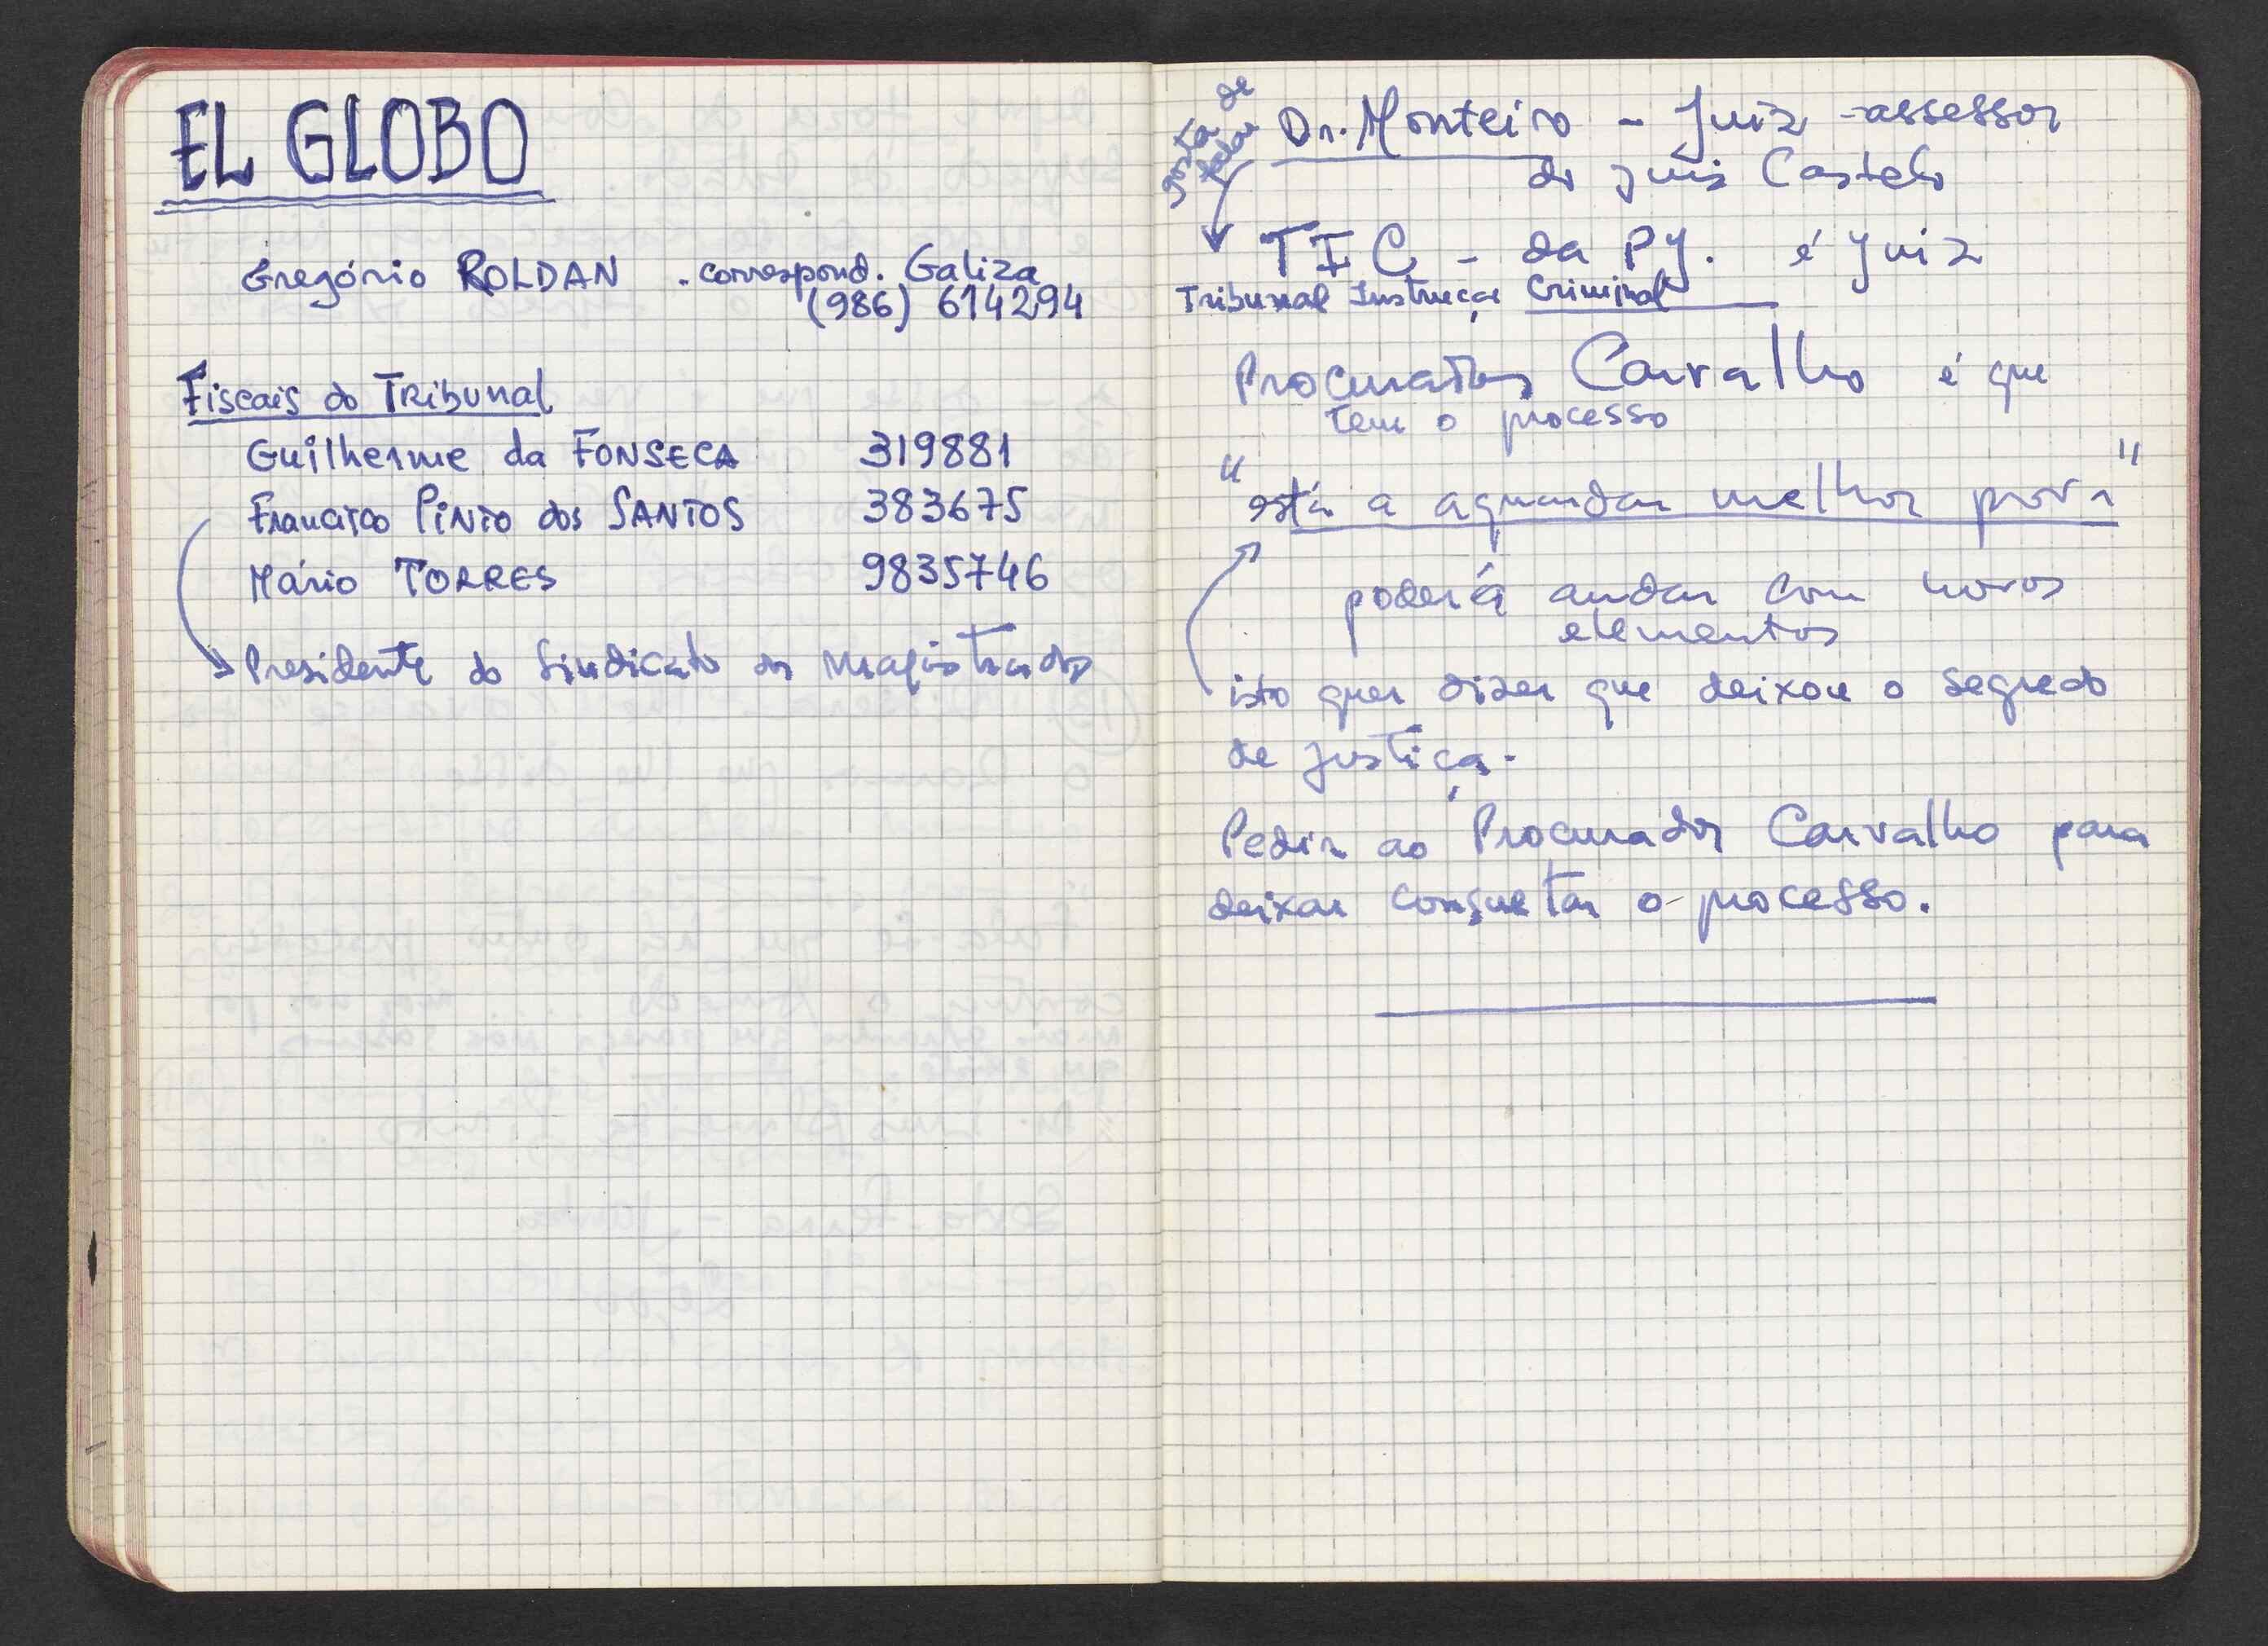 EL GLOBO
Gregório ROLDAN . correspond. Galiza
(986) 614294
Fiscais do Tribunal
Guilherme da FONSECA 319881
Francisco PINTO dos SANTOS 383675
Mário TORRES 9835746
Presidente do Sindicato dos Magistrados
gosta de
falar
Dr. Monteiro - Juiz-assessor
do juiz Castelo
TIC - da PJ. é Juiz
Tribunal Instrução Criminal
Procurador Carvalho é que
tem o processo
"está a aguardar melhor prova"
poderá andar com novos
elementos
isto quer dizer que deixou o segredo
de justiça.
Pedir ao Procurador Carvalho para
deixar consultar o processo.